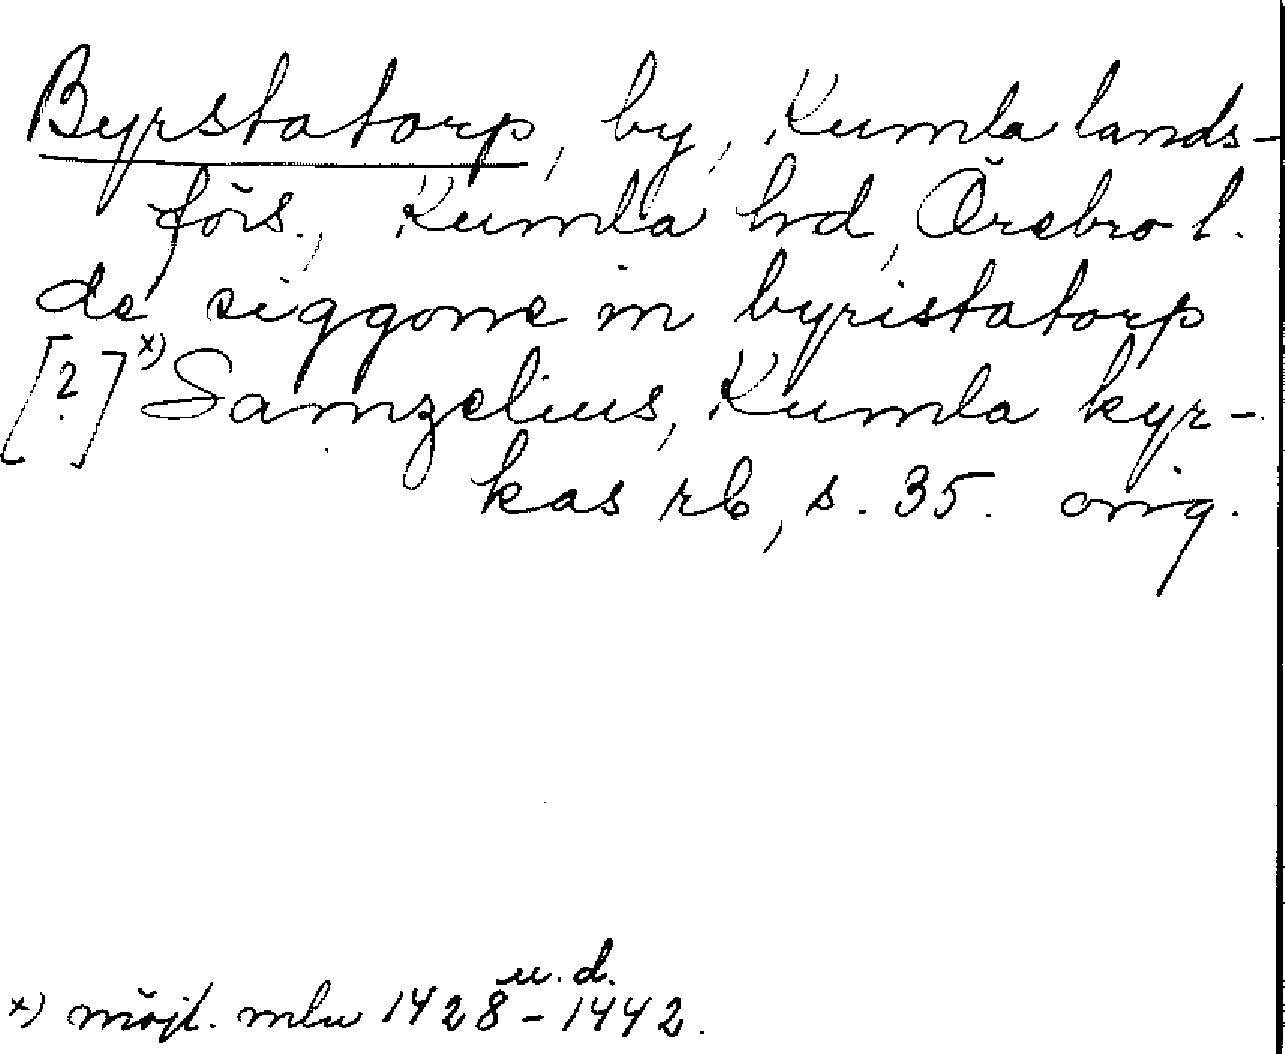 Byrstatorp, by, Kumla lands-
förs., Kumla hd, Örebro l.
de siggone in byristatorp
[?] x) Samzelius, Kumla kyr-
kas rb, s. 35. orig.
u. d.
x) möjl. mlu 1428-1442.